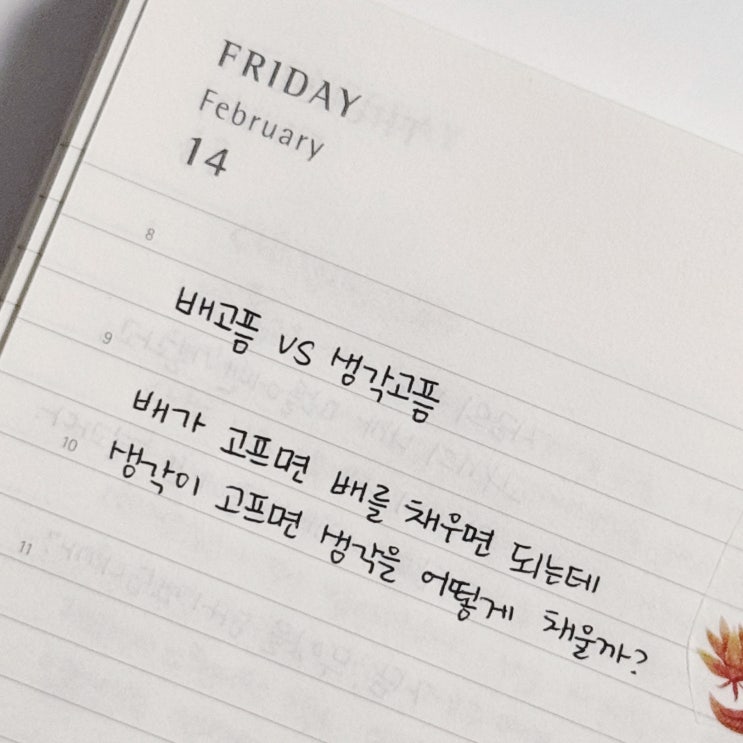 FRIDAY
February
14
8
배고픔 vs 생각고픔
9
배가 고프면 배를 채우면 되는데
10
생각이 고프면 생각을 어떻게 채울까?
11